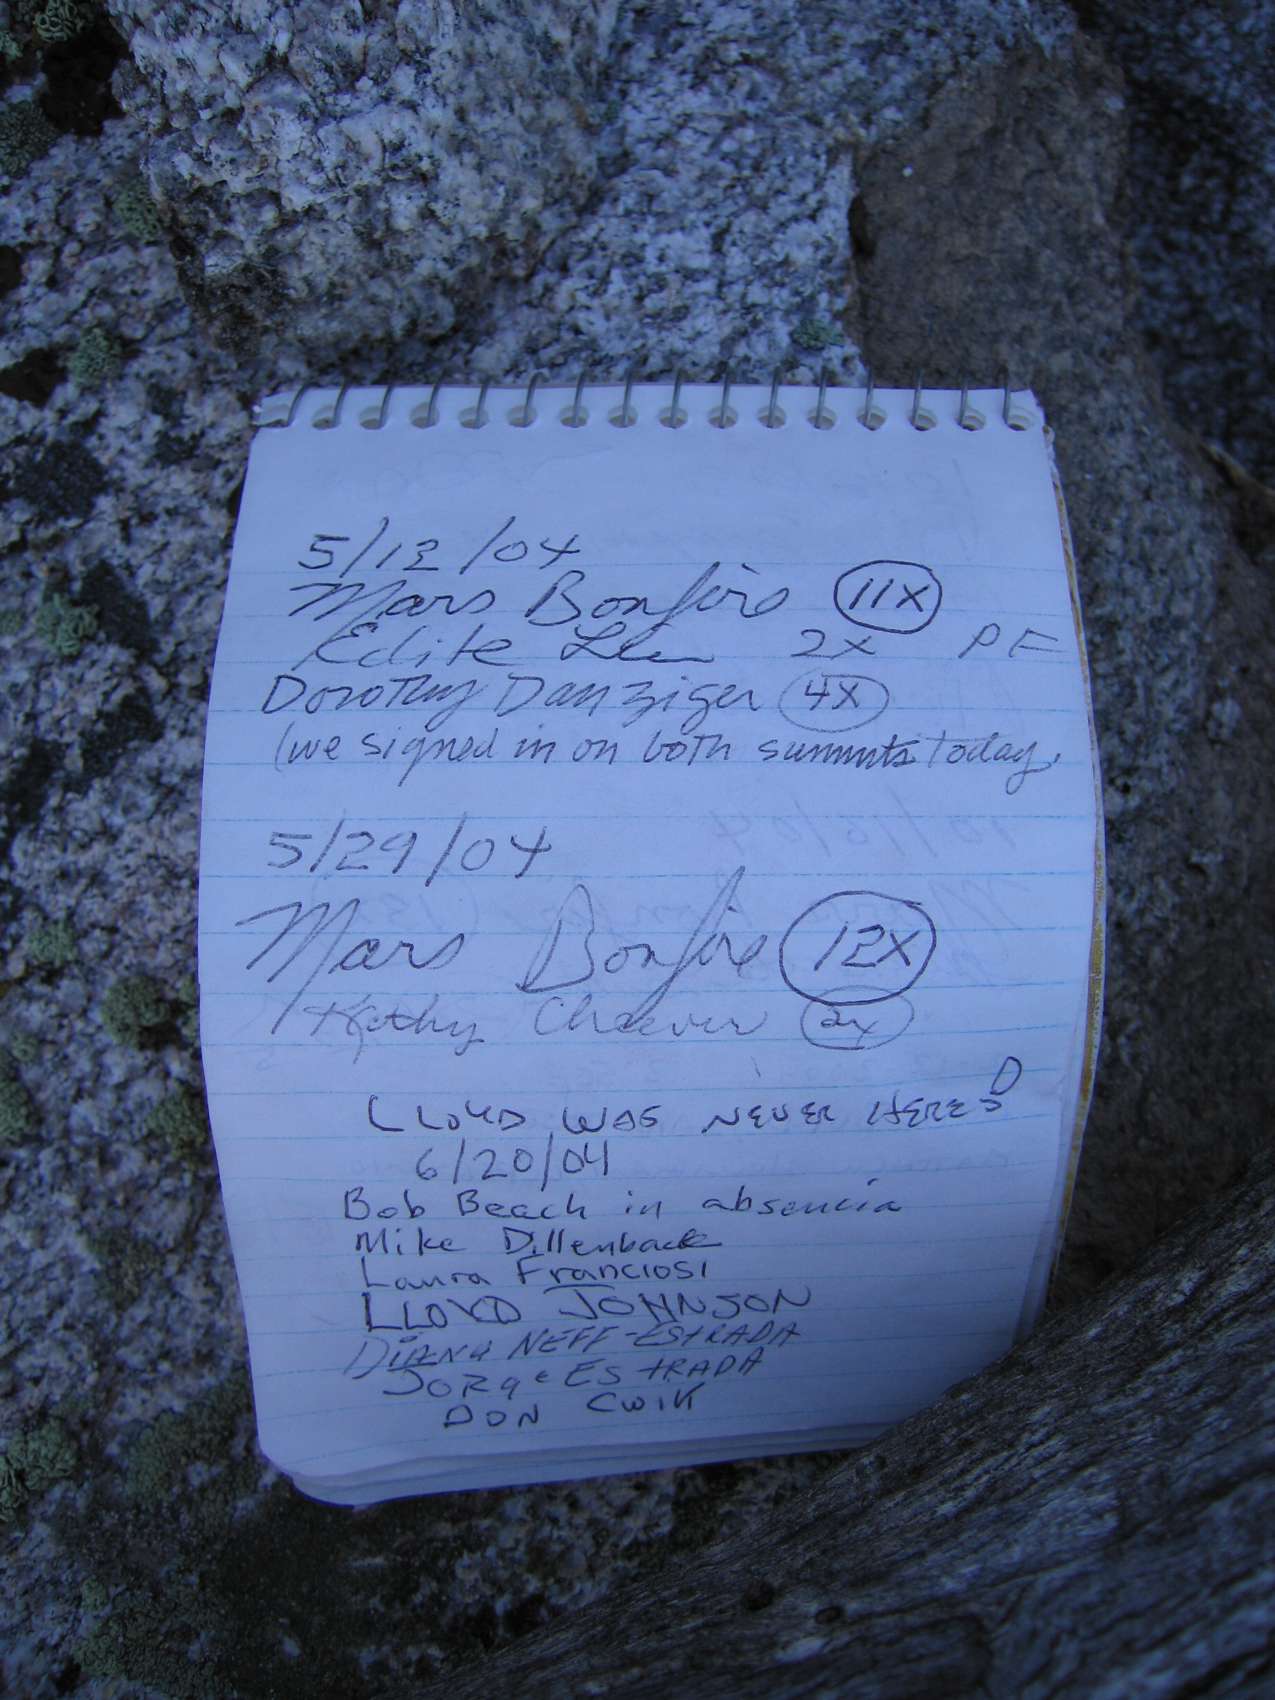 5/12/04
Mars Bonfire 11X
Edite 2X PF
Dorothy Danziger 4X
(we signed in on both summits today.
5/29/04
Mars Bonfire 12X
Kathy Cheever 2x
LLOYD WAS NEVER HERE
6/20/04
Bob Beach in absencia
Mike Dillenback
Laura Franciosi
LLOYD JOHNSON
DIANA NEFF-ESTRADA
JORGE ESTRADA
DON CWIK